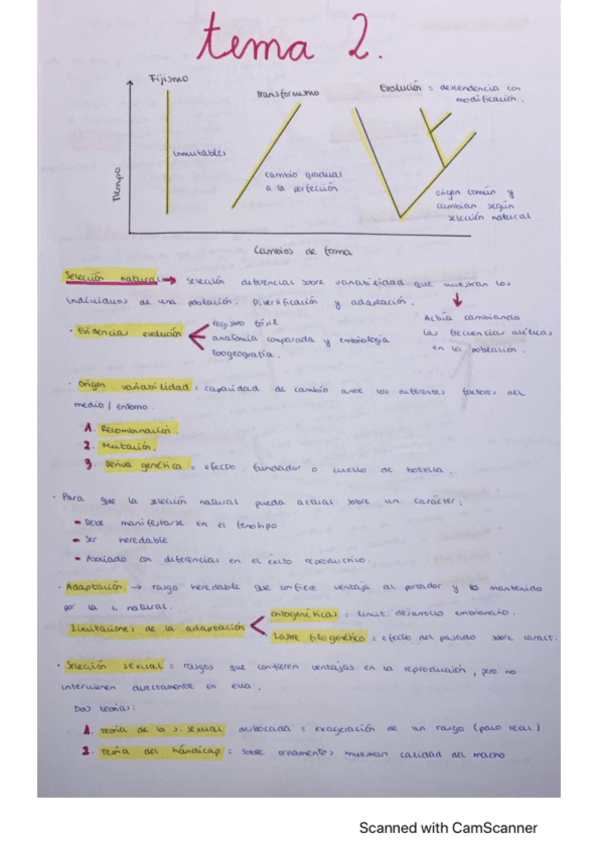 tema 2.
Fijismo
transformismo
Evolución = descendencia con
modificación.
inmutables
cambio gradual
a la perfección
origen común y
cambian según
selección natural
Tiempo
Cambios de forma
Selección natural → selección diferencial sobre variabilidad que muestran los
individuos de una población. Diversificación y adaptación.
Actúa cambiando
las frecuencias alélicas
en la población.
· Evidencias evolución
registro fósil
anatomía comparada y embriología
zoogeografía.
· Origen variabilidad = capacidad de cambio ante los diferentes factores del
medio / entorno.
1. Recombinación.
2. Mutación.
3. Deriva genética = efecto fundador o cuello de botella.
· Para que la selección natural pueda actuar sobre un carácter:
- Debe manifestarse en el fenotipo
- Ser heredable
- Asociado con diferencias en el éxito reproductivo.
· Adaptación → rasgo heredable que confiere ventaja al portador y es mantenido
por la s. natural.
Limitaciones de la adaptación
ontogenéticas = limit. desarrollo embrionario.
Lastre filogenético = efecto del pasado sobre caract.
· Selección sexual = rasgos que confieren ventajas en la reproducción, pero no
intervienen directamente en ella.
Dos teorías:
1. Teoría de la s. sexual desbocada = exageración de un rasgo (pavo real)
2. Teoría del hándicap = sobre ornamentos muestran calidad del macho
Scanned with CamScanner